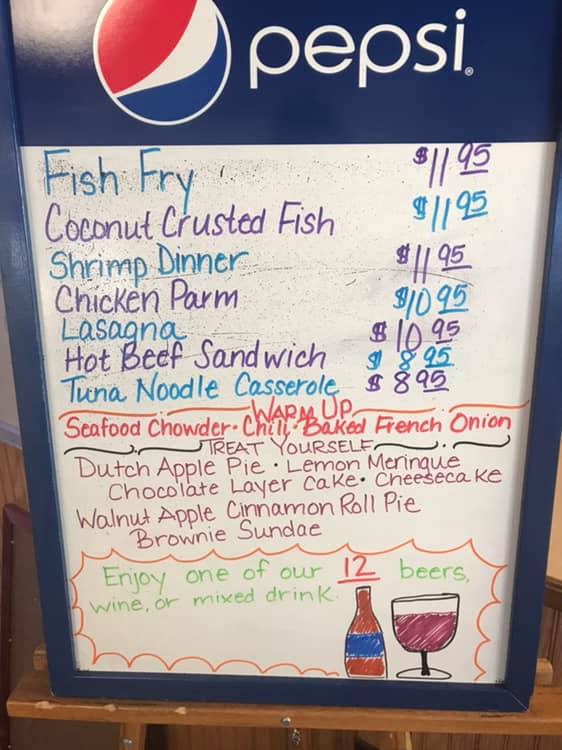 pepsi®
Fish Fry $11 95
Coconut Crusted Fish $11 95
Shrimp Dinner $11 95
Chicken Parm $10 95
Lasagna $10 95
Hot Beef Sandwich $8 95
Tuna Noodle Casserole $8 95
WARM UP
Seafood Chowder · Chili · Baked French Onion
TREAT YOURSELF
Dutch Apple Pie · Lemon Meringue
Chocolate Layer Cake · Cheesecake
Walnut Apple Cinnamon Roll Pie
Brownie Sundae
Enjoy one of our 12 beers,
wine, or mixed drink.